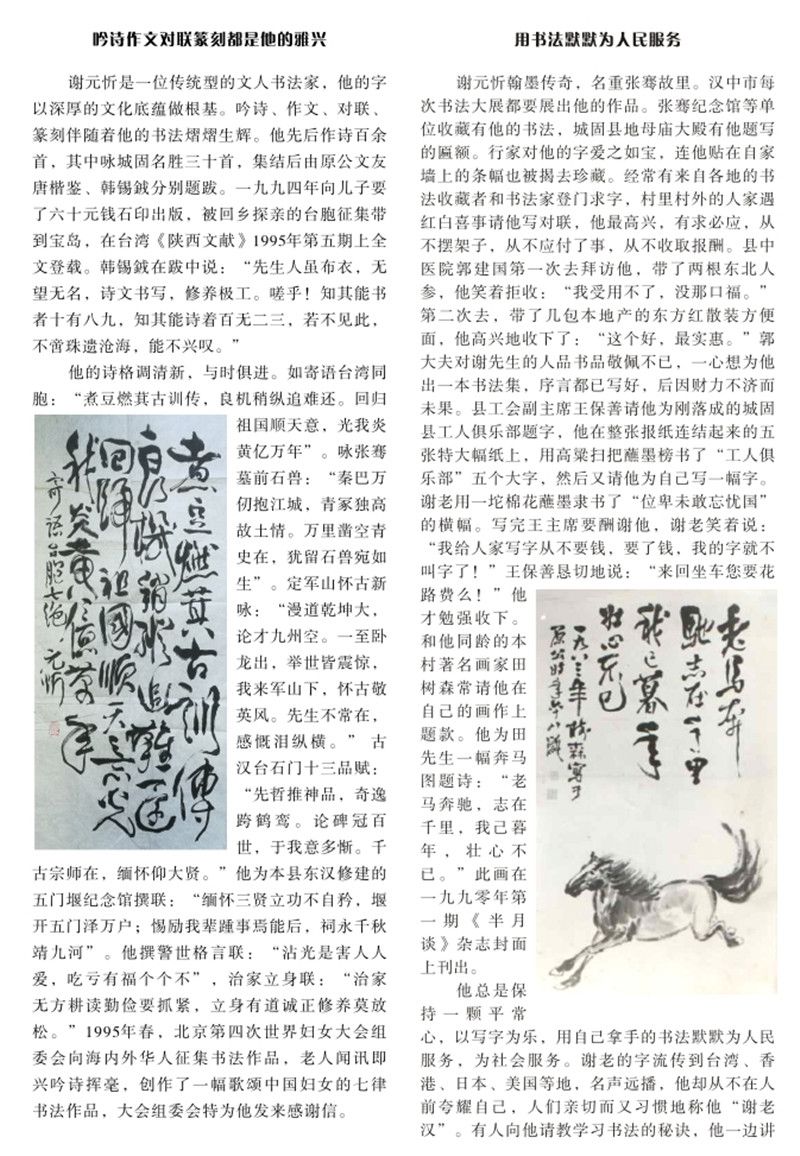 吟诗作文对联篆刻都是他的雅兴
谢元忻是一位传统型的文人书法家，他的字
以深厚的文化底蕴做根基。吟诗、作文、对联、
篆刻伴随着他的书法熠熠生辉。他先后作诗百余
首，其中咏城固名胜三十首，集结后由原公文友
唐楷鉴、韩锡钺分别题跋。一九九四年向儿子要
了六十元钱石印出版，被回乡探亲的台胞征集带
到宝岛，在台湾《陕西文献》1995年第五期上全
文登载。韩锡钺在跋中说：“先生人虽布衣，无
望无名，诗文书写，修养极工。嗟乎！知其能书
者十有八九，知其能诗着百无二三，若不见此，
不啻珠遗沧海，能不兴叹。”
他的诗格调清新，与时俱进。如寄语台湾同
胞：“煮豆燃萁古训传，良机稍纵追难还。回归
祖国顺天意，光我炎
黄亿万年”。咏张骞
墓前石兽：“秦巴万
仞抱江城，青冢独高
故土情。万里凿空青
史在，犹留石兽宛如
生”。定军山怀古新
咏：“漫道乾坤大，
论才九州空。一至卧
龙出，举世皆震惊，
我来军山下，怀古敬
英风。先生不常在，
感慨泪纵横。”古
汉台石门十三品赋：
“先哲推神品，奇逸
跨鹤鸾。论碑冠百
世，于我意多惭。千
古宗师在，缅怀仰大贤。”他为本县东汉修建的
五门堰纪念馆撰联：“缅怀三贤立功不自矜，堰
开五门泽万户；惕励我辈踵事焉能后，祠永千秋
靖九河”。他撰警世格言联：“沾光是害人人
爱，吃亏有福个个不”，治家立身联：“治家
无方耕读勤俭要抓紧，立身有道诚正修养莫放
松。”1995年春，北京第四次世界妇女大会组
委会向海内外华人征集书法作品，老人闻讯即
兴吟诗挥毫，创作了一幅歌颂中国妇女的七律
书法作品，大会组委会特为他发来感谢信。
煮豆燃萁古训传
良机稍纵追难还
回归祖國顺天意光
我炎黄億萬年
寄语台胞七绝 元忻
用书法默默为人民服务
谢元忻翰墨传奇，名重张骞故里。汉中市每
次书法大展都要展出他的作品。张骞纪念馆等单
位收藏有他的书法，城固县地母庙大殿有他题写
的匾额。行家对他的字爱之如宝，连他贴在自家
墙上的条幅也被揭去珍藏。经常有来自各地的书
法收藏者和书法家登门求字，村里村外的人家遇
红白喜事请他写对联，他最高兴，有求必应，从
不摆架子，从不应付了事，从不收取报酬。县中
医院郭建国第一次去拜访他，带了两根东北人
参，他笑着拒收：“我受用不了，没那口福。”
第二次去，带了几包本地产的东方红散装方便
面，他高兴地收下了：“这个好，最实惠。”郭
大夫对谢先生的人品书品敬佩不已，一心想为他
出一本书法集，序言都已写好，后因财力不济而
未果。县工会副主席王保善请他为刚落成的城固
县工人俱乐部题字，他在整张报纸连结起来的五
张特大幅纸上，用高粱扫把蘸墨榜书了“工人俱
乐部”五个大字，然后又请他为自己写一幅字。
谢老用一坨棉花蘸墨隶书了“位卑未敢忘忧国”
的横幅。写完王主席要酬谢他，谢老笑着说：
“我给人家写字从不要钱，要了钱，我的字就不
叫字了！”王保善恳切地说：“来回坐车您要花
路费么！”他
才勉强收下。
和他同龄的本
村著名画家田
树森常请他在
自己的画作上
题款。他为田
先生一幅奔马
图题诗：“老
马奔驰，志在
千里，我已暮
年，壮心不
已。”此画在
一九九零年第
一期《半月
谈》杂志封面
上刊出。
他总是保
持一颗平常
心，以写字为乐，用自己拿手的书法默默为人民
服务，为社会服务。谢老的字流传到台湾、香
港、日本、美国等地，名声远播，他却从不在人
前夸耀自己，人们亲切而又习惯地称他“谢老
汉”。有人向他请教学习书法的秘诀，他一边讲
老马奔
馳志在千里
我已暮年
壮心不已
一九八三年树森写于